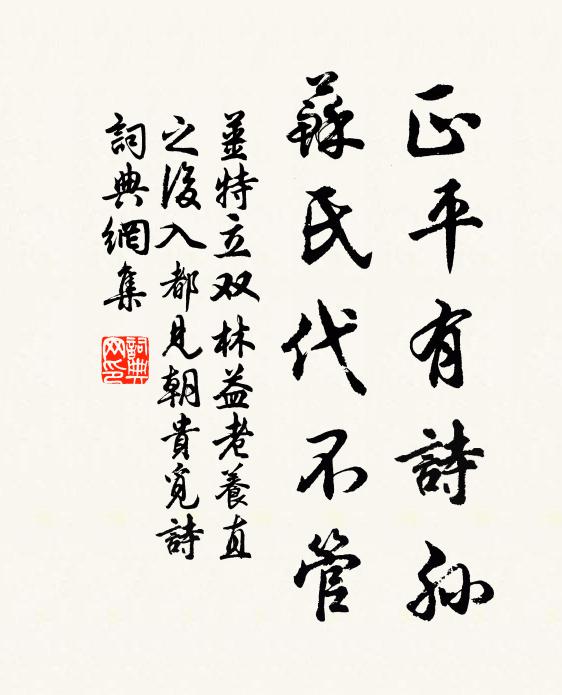 正平有詩孫
蘇氏代不管
薑特立双林益老養直
之後入都見朝貴覓詩
詞典網集
詞典网印